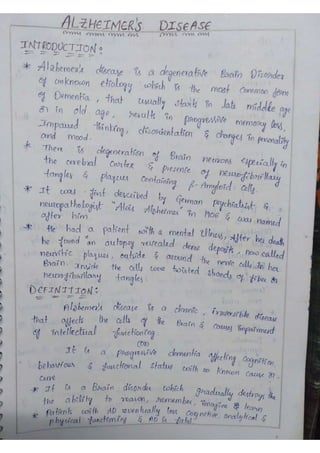 ALZHEIMER'S DISEASE
INTRODUCTION:
* Alzheimer's disease is a degenerative Brain Disorder
of unknown etiology which is the most common form
of Dementia, that usually starts in late middle age
or in old age, results in progressive memory loss,
Impaired thinking, disorientation & changes in personality
and mood.
* There is degeneration of Brain neurons especially in
the cerebral cortex & presense of neurofibrillary
tangles & plaques containing β-Amyloid cells.
* It was first described by German psychiatrist &
neuropathologist "Alois Alzheimer" in 1906 & was named
after him.
* He had a patient with a mental illness, After her death
he found an autopsy revealed dense deposits, now called
neuritic plaques, outside & around the nerve cells in her
Brain. Inside the cells were twisted strands of fiber or
neurofibrillary tangles.
DEFINITION:
Alzheimer's disease is a chronic, irreversible disease
that affects the cells of the Brain & causes impairment
of intellectual functioning.
(or)
It is a progressive dementia affecting cognition
behaviour & functional status with no known cause or
cure
* It is a Brain disorder which gradually destroys the
the ability to reason, remember, imagine & learn.
* Patients with AD eventually lose cognitive, analytical &
physical functioning & AD is fatal.